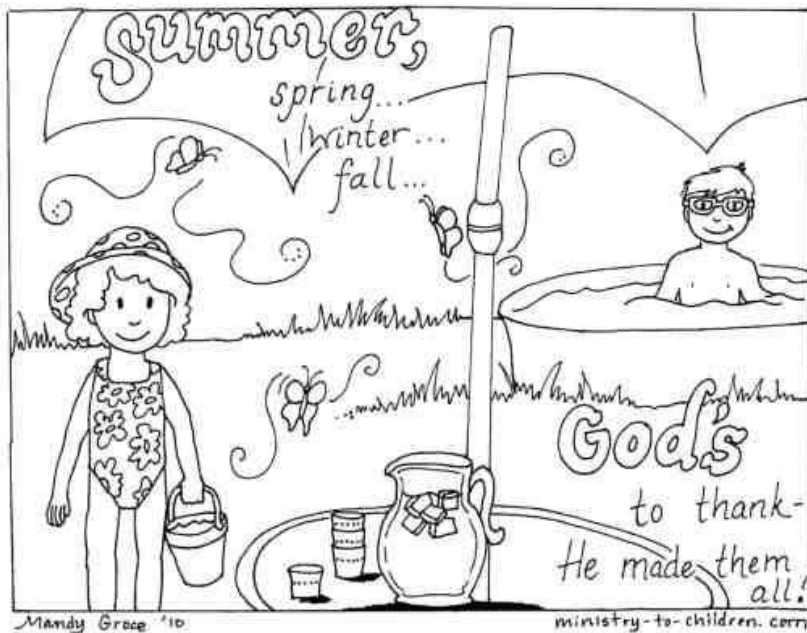 summer,
spring...
winter...
fall...
God's
to thank-
He made them
all!
Mandy Groce '10
ministry-to-children.com